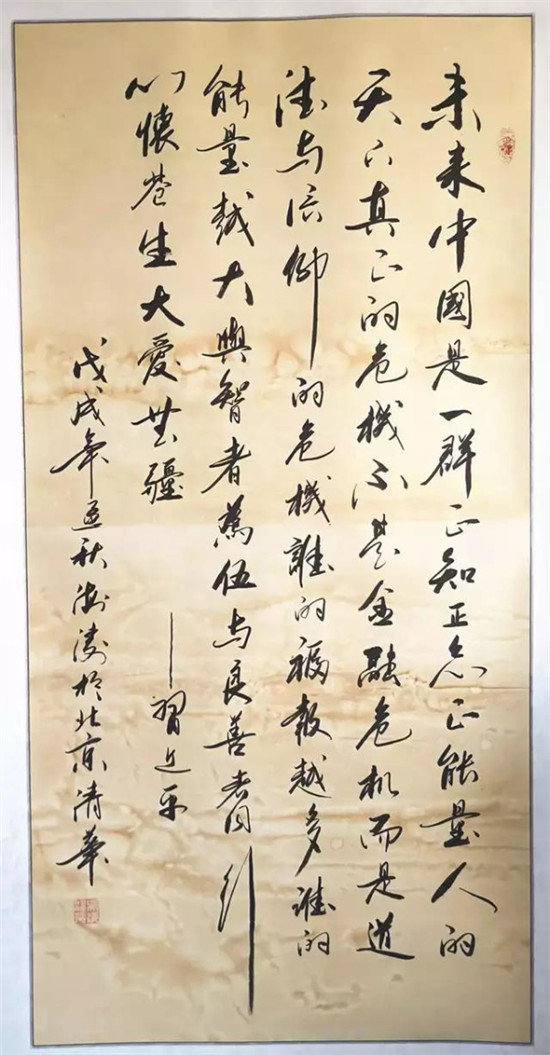 未来中國是一群正知正念正能量人的
天下真正的危機不是金融危机而是道
德与信仰的危機誰的福報越多誰的
能量越大與智者為伍与良善者同行
心懷苍生大愛無疆
——習近平
戊戌年秋於北京清華